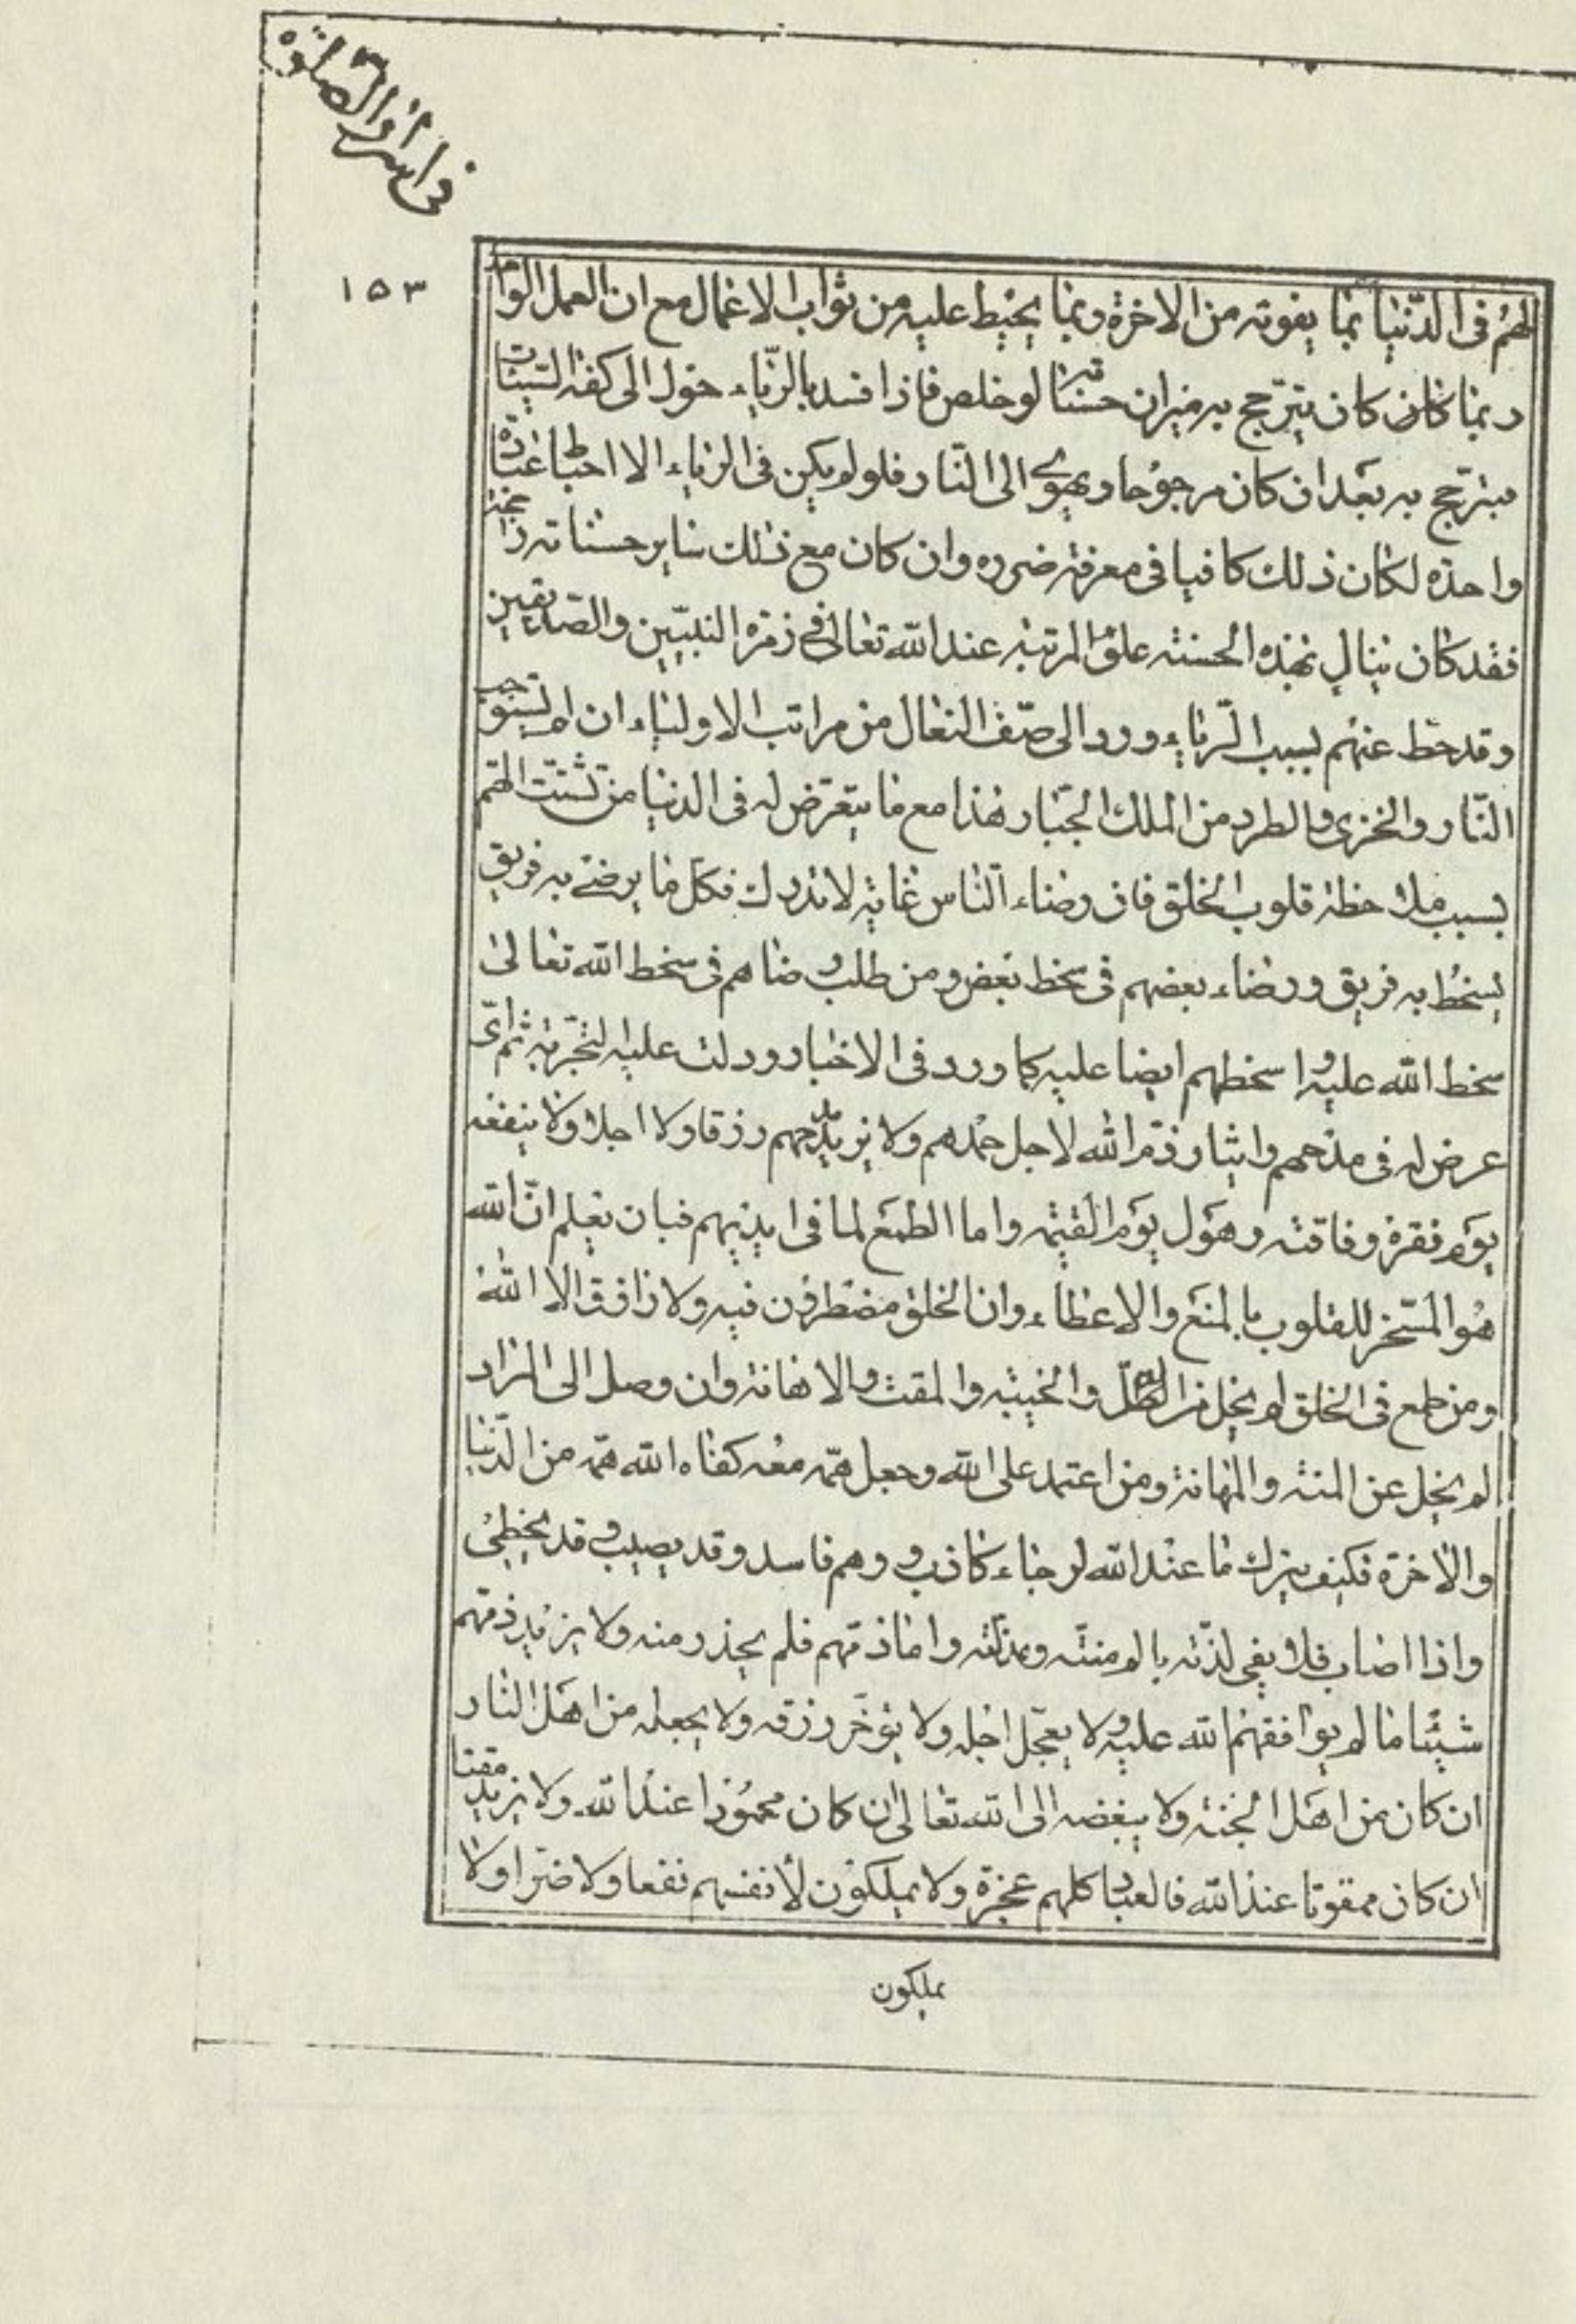 فی اسرار الصلوة
۱۵۳
لهم فی الدنیا بما یفوته من الاخرة وبما یحبط علیه من ثواب الاعمال مع ان العمل الواحد
ربما کان کان یترجح به میزان حسناته لو خلص فاذا فسد بالریاء حول الی کفة السیئات
فیترجح به بعد ان کان مرجوحا ویهوی الی النار فلو لم یکن فی الریاء الا احباط عبادة
واحدة لکان ذلک کافیا فی معرفة ضرره وان کان مع ذلک سایر حسناته راجحة
فقد کان ینال بهذه الحسنة علو المرتبة عند الله تعالی فی زمرة النبیین والصدیقین
وقد حط عنهم بسبب الریاء ورد الی صف النعال من مراتب الاولیاء ان لم یستوجب
النار والخزی والطرد من الملک الجبار هذا مع ما یتعرض له فی الدنیا من تشتت الهم
بسبب ملاحظة قلوب الخلق فان رضاء الناس غایة لا تدرک فکل ما یرضی به فریق
یسخط به فریق ورضاء بعضهم فی سخط بعض ومن طلب رضاهم فی سخط الله تعالی
سخط الله علیه واسخطهم ایضا علیه کما ورد فی الاخبار ودلت علیه التجربة ثم ای
عرض له فی مدحهم وایثار ذم الله لاجل حمدهم ولا یزید مدحهم رزقا ولا اجلا ولا ینفعه
یوم فقره وفاقته وهول یوم القیمة واما الطمع لما فی ایدیهم فبان یعلم ان الله
هو المسخر للقلوب بالمنع والاعطاء وان الخلق مضطرون فیه ولا رازق الا الله
ومن طمع فی الخلق لم یخل من الذل والخیبة والمقت والاهانة وان وصل الی المراد
لم یخل عن المنة والمهانة ومن اعتمد علی الله وجعل همه معه کفاه الله همه من الدنیا
والاخرة فکیف یترک ما عند الله لرجاء کاذب ووهم فاسد وقد یصیب وقد یخطئ
واذا اصاب فلا یفی لذته بالم منته ومذلته واما ذمهم فلم یحذر منه ولا یزید ذمهم
شیئا ما لم یوافقهم الله علیه ولا یعجل اجله ولا یؤخر رزقه ولا یجعله من اهل النار
ان کان من اهل الجنة ولا یبغضه الی الله تعالی ان کان محمودا عند الله ولا یزید مقتا
ان کان ممقوتا عند الله فالعباد کلهم عجزة ولا یملکون لأنفسهم نفعا ولا ضرا ولا
یملکون